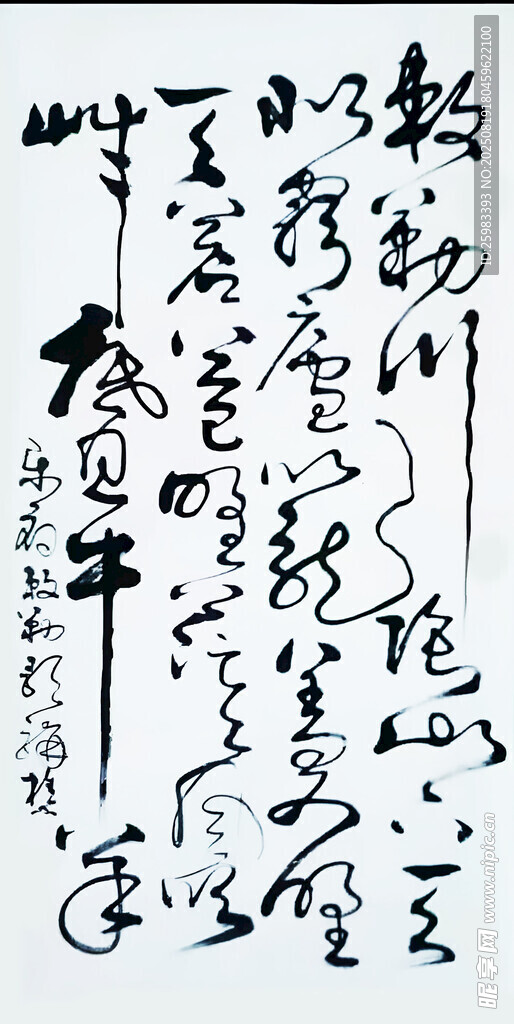 敕勒川陰山下天
似穹廬籠蓋四野
天蒼蒼野茫茫風吹
草低見牛羊
乐府敕勒歌
ID:25983393 NO:20250819180459622100
昵享网 www.nipic.cn